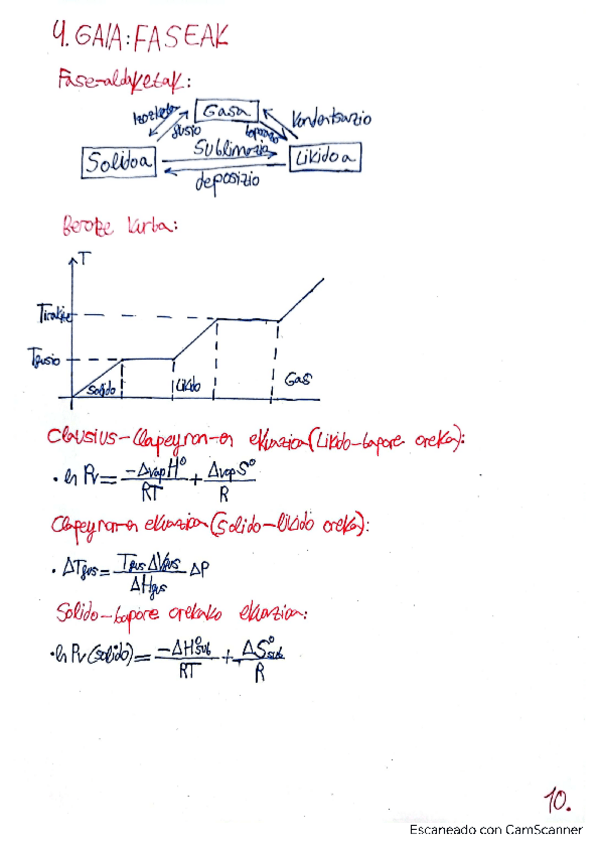 4. GAIA: FASEAK
Fase-aldaketak:
Gasa
Izozketa
fusio
Kondentsazio
baporizazio
Sublimazio
Solidoa
Likidoa
deposizio
Beroze kurba:
T
Tirakite
Tfusio
Solido
Likido
Gas
Clausius-Clapeyron-en ekuazioa (Likido-bapore oreka):
· ln Pv = -ΔvapH°/RT + ΔvapS°/R
Clapeyron-en ekuazioa (Solido-likido oreka):
· ΔTfus = Tfus ΔVfus/ΔHfus ΔP
Solido-bapore orekako ekuazioa:
· ln Pv(solido) = -ΔH°sub/RT + ΔS°sub/R
10.
Escaneado con CamScanner